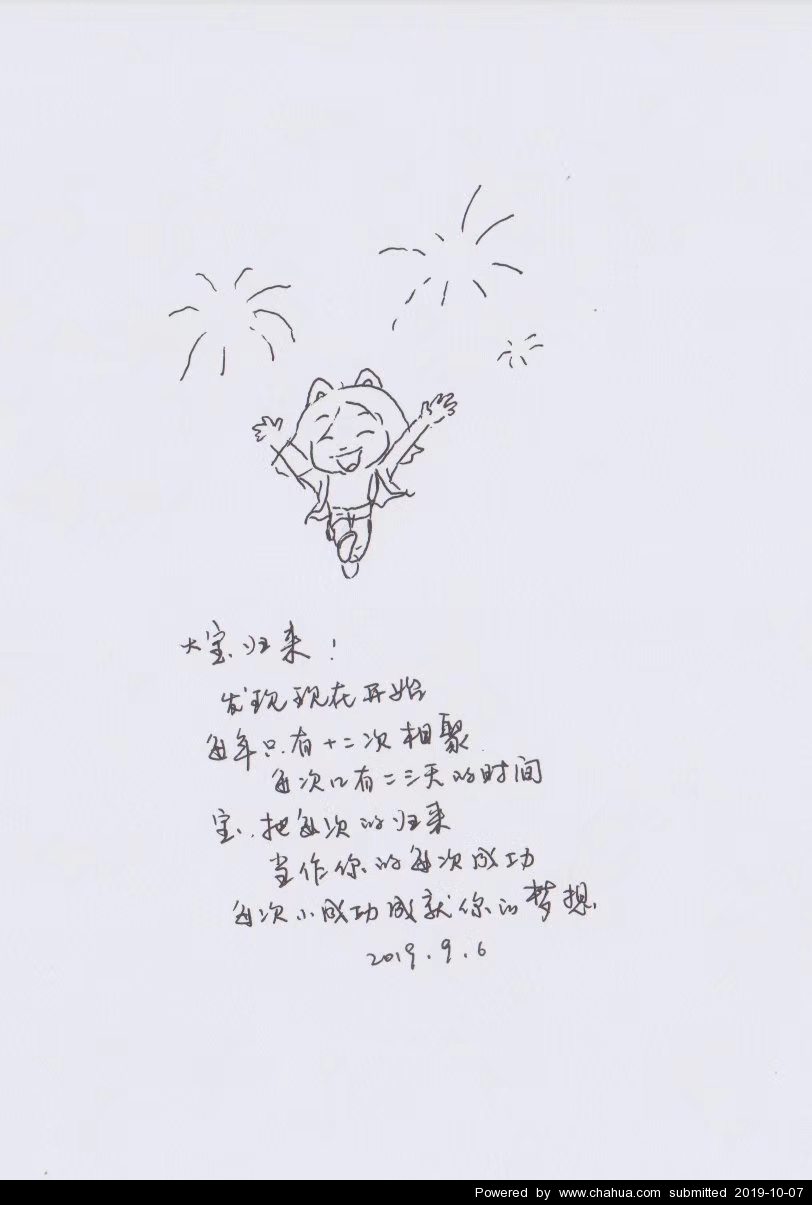 大宝归来！
发现现在开始
每年只有十二次相聚
每次只有二三天的时间
宝，把每次的归来
当作你的每次成功
每次小成功成就你的梦想。
2019.9.6
Powered by www.chahua.com submitted 2019-10-07